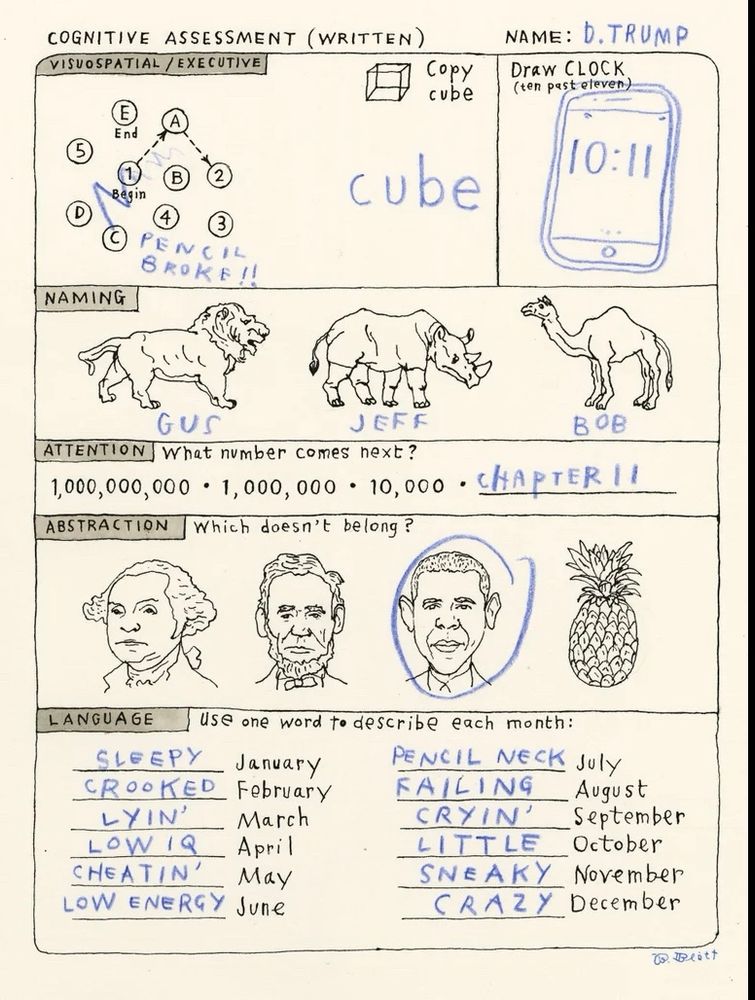 COGNITIVE ASSESSMENT (WRITTEN) NAME: D.TRUMP
VISUOSPATIAL / EXECUTIVE
E
End
A
5
1
Begin
B
2
D
4
3
C
PENCIL
BROKE!!
Copy
cube
cube
Draw CLOCK
(ten past eleven)
10:11
NAMING
GUS JEFF BOB
ATTENTION What number comes next?
1,000,000,000 • 1,000,000 • 10,000 • CHAPTER 11
ABSTRACTION Which doesn't belong?
LANGUAGE Use one word to describe each month:
SLEEPY January
CROOKED February
LYIN' March
LOW IQ April
CHEATIN' May
LOW ENERGY June
PENCIL NECK July
FAILING August
CRYIN' September
LITTLE October
SNEAKY November
CRAZY December